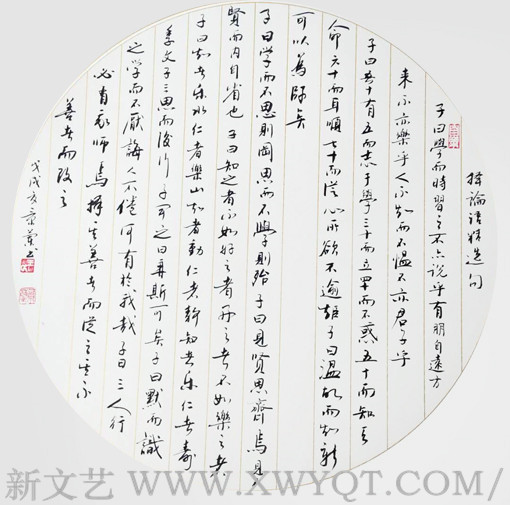 择論语精选句
子曰學而時習之不亦說乎有朋自遠方
来不亦樂乎人不知而不愠不亦君子乎
子曰吾十有五而志于學三十而立四十而不惑五十而知天
命六十而耳順七十而從心所欲不逾矩子曰溫故而知新
可以為師矣
子曰学而不思則罔思而不學則殆子曰見賢思齊焉見不
賢而内自省也子曰知之者不如好之者好之者不如樂之者
子曰知者乐水仁者樂山知者動仁者静知者乐仁者壽
季文子三思而後行子聞之曰再斯可矣子曰默而識
之学而不厭誨人不倦何有於我哉子曰三人行
必有我師焉擇其善者而從之其不
善者而改之
戊戌
新文艺 WWW.XWYQT.COM/